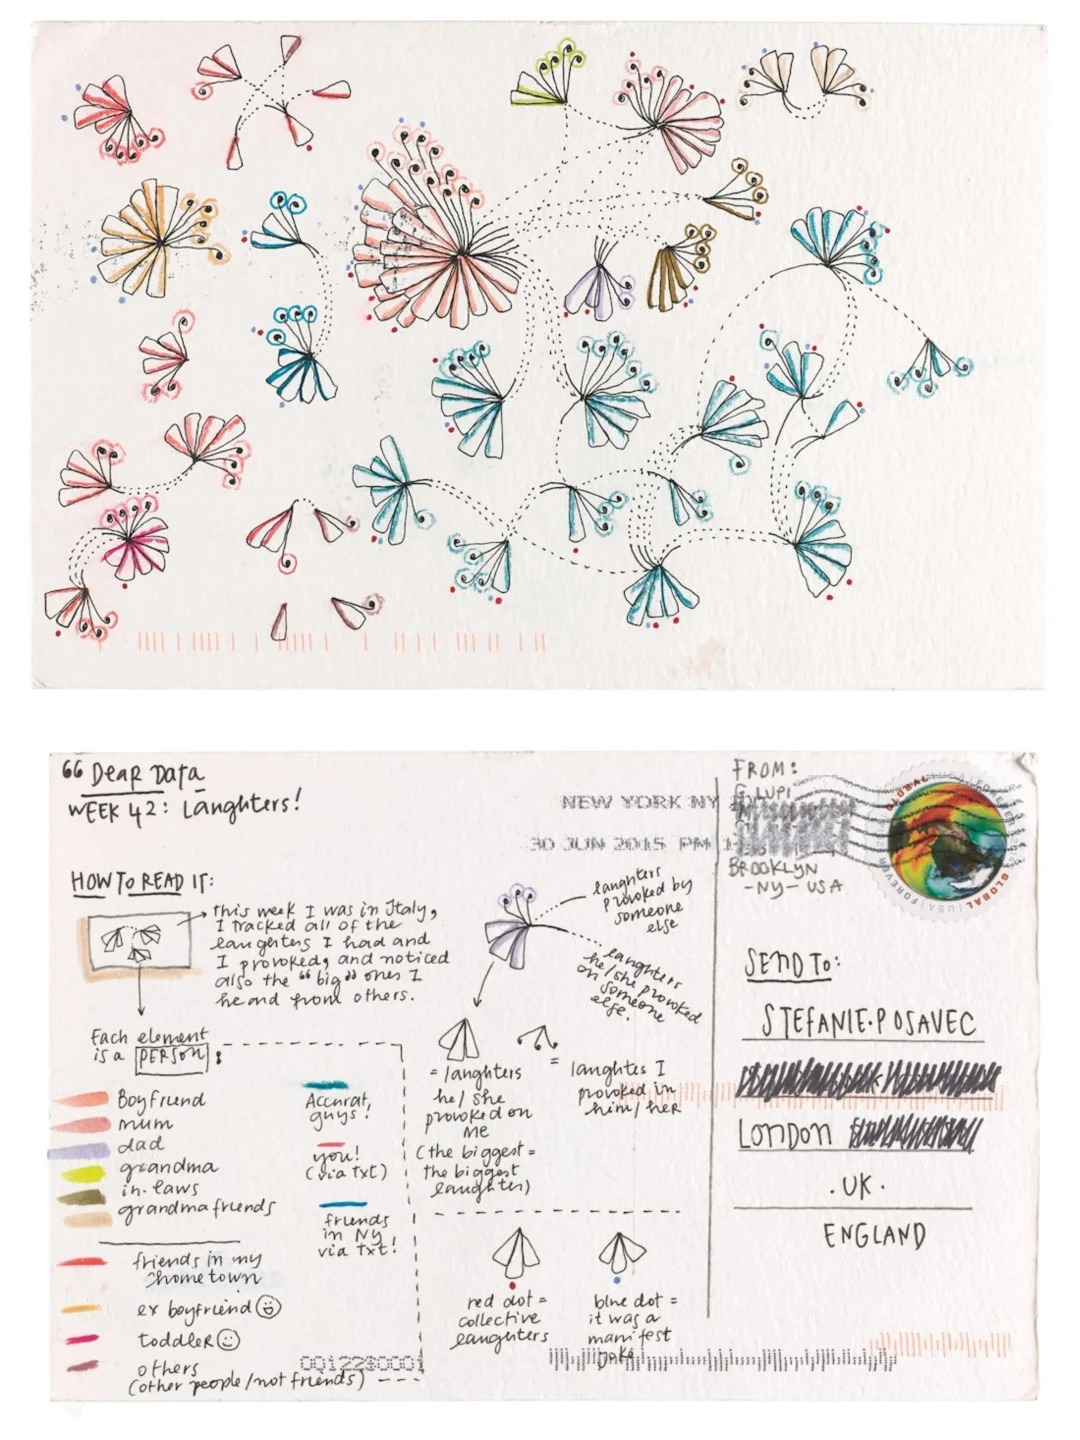 “ Dear Data
WEEK 42: Laughters!
HOW TO READ IT:
this week I was in Italy,
I tracked all of the
laughters I had and
I provoked, and noticed
also the “big” ones I
heard from others.
Each element
is a PERSON:
Boyfriend
mum
dad
grandma
in-laws
grandma friends
friends in my
hometown
ex boyfriend
toddler
others
(other people/not friends)
Accurat,
guys!
you!
(via txt)
friends
in NY
via txt!
laughters
provoked by
someone
else
laughters
he/she provoked
on someone
else.
= laughters
he/she
provoked on
me
(the biggest =
the biggest
laughter)
= laughtes I
provoked in
him/her
red dot =
collective
laughters
blue dot =
it was a
manifest
joke
0012280001
NEW YORK NY
30 JUN 2015 PM
FROM:
G. LUPI
BROOKLYN
-NY- USA
GLOBAL USA FOREVER
GLOBAL
SEND TO:
STEFANIE·POSAVEC
LONDON
·UK·
ENGLAND